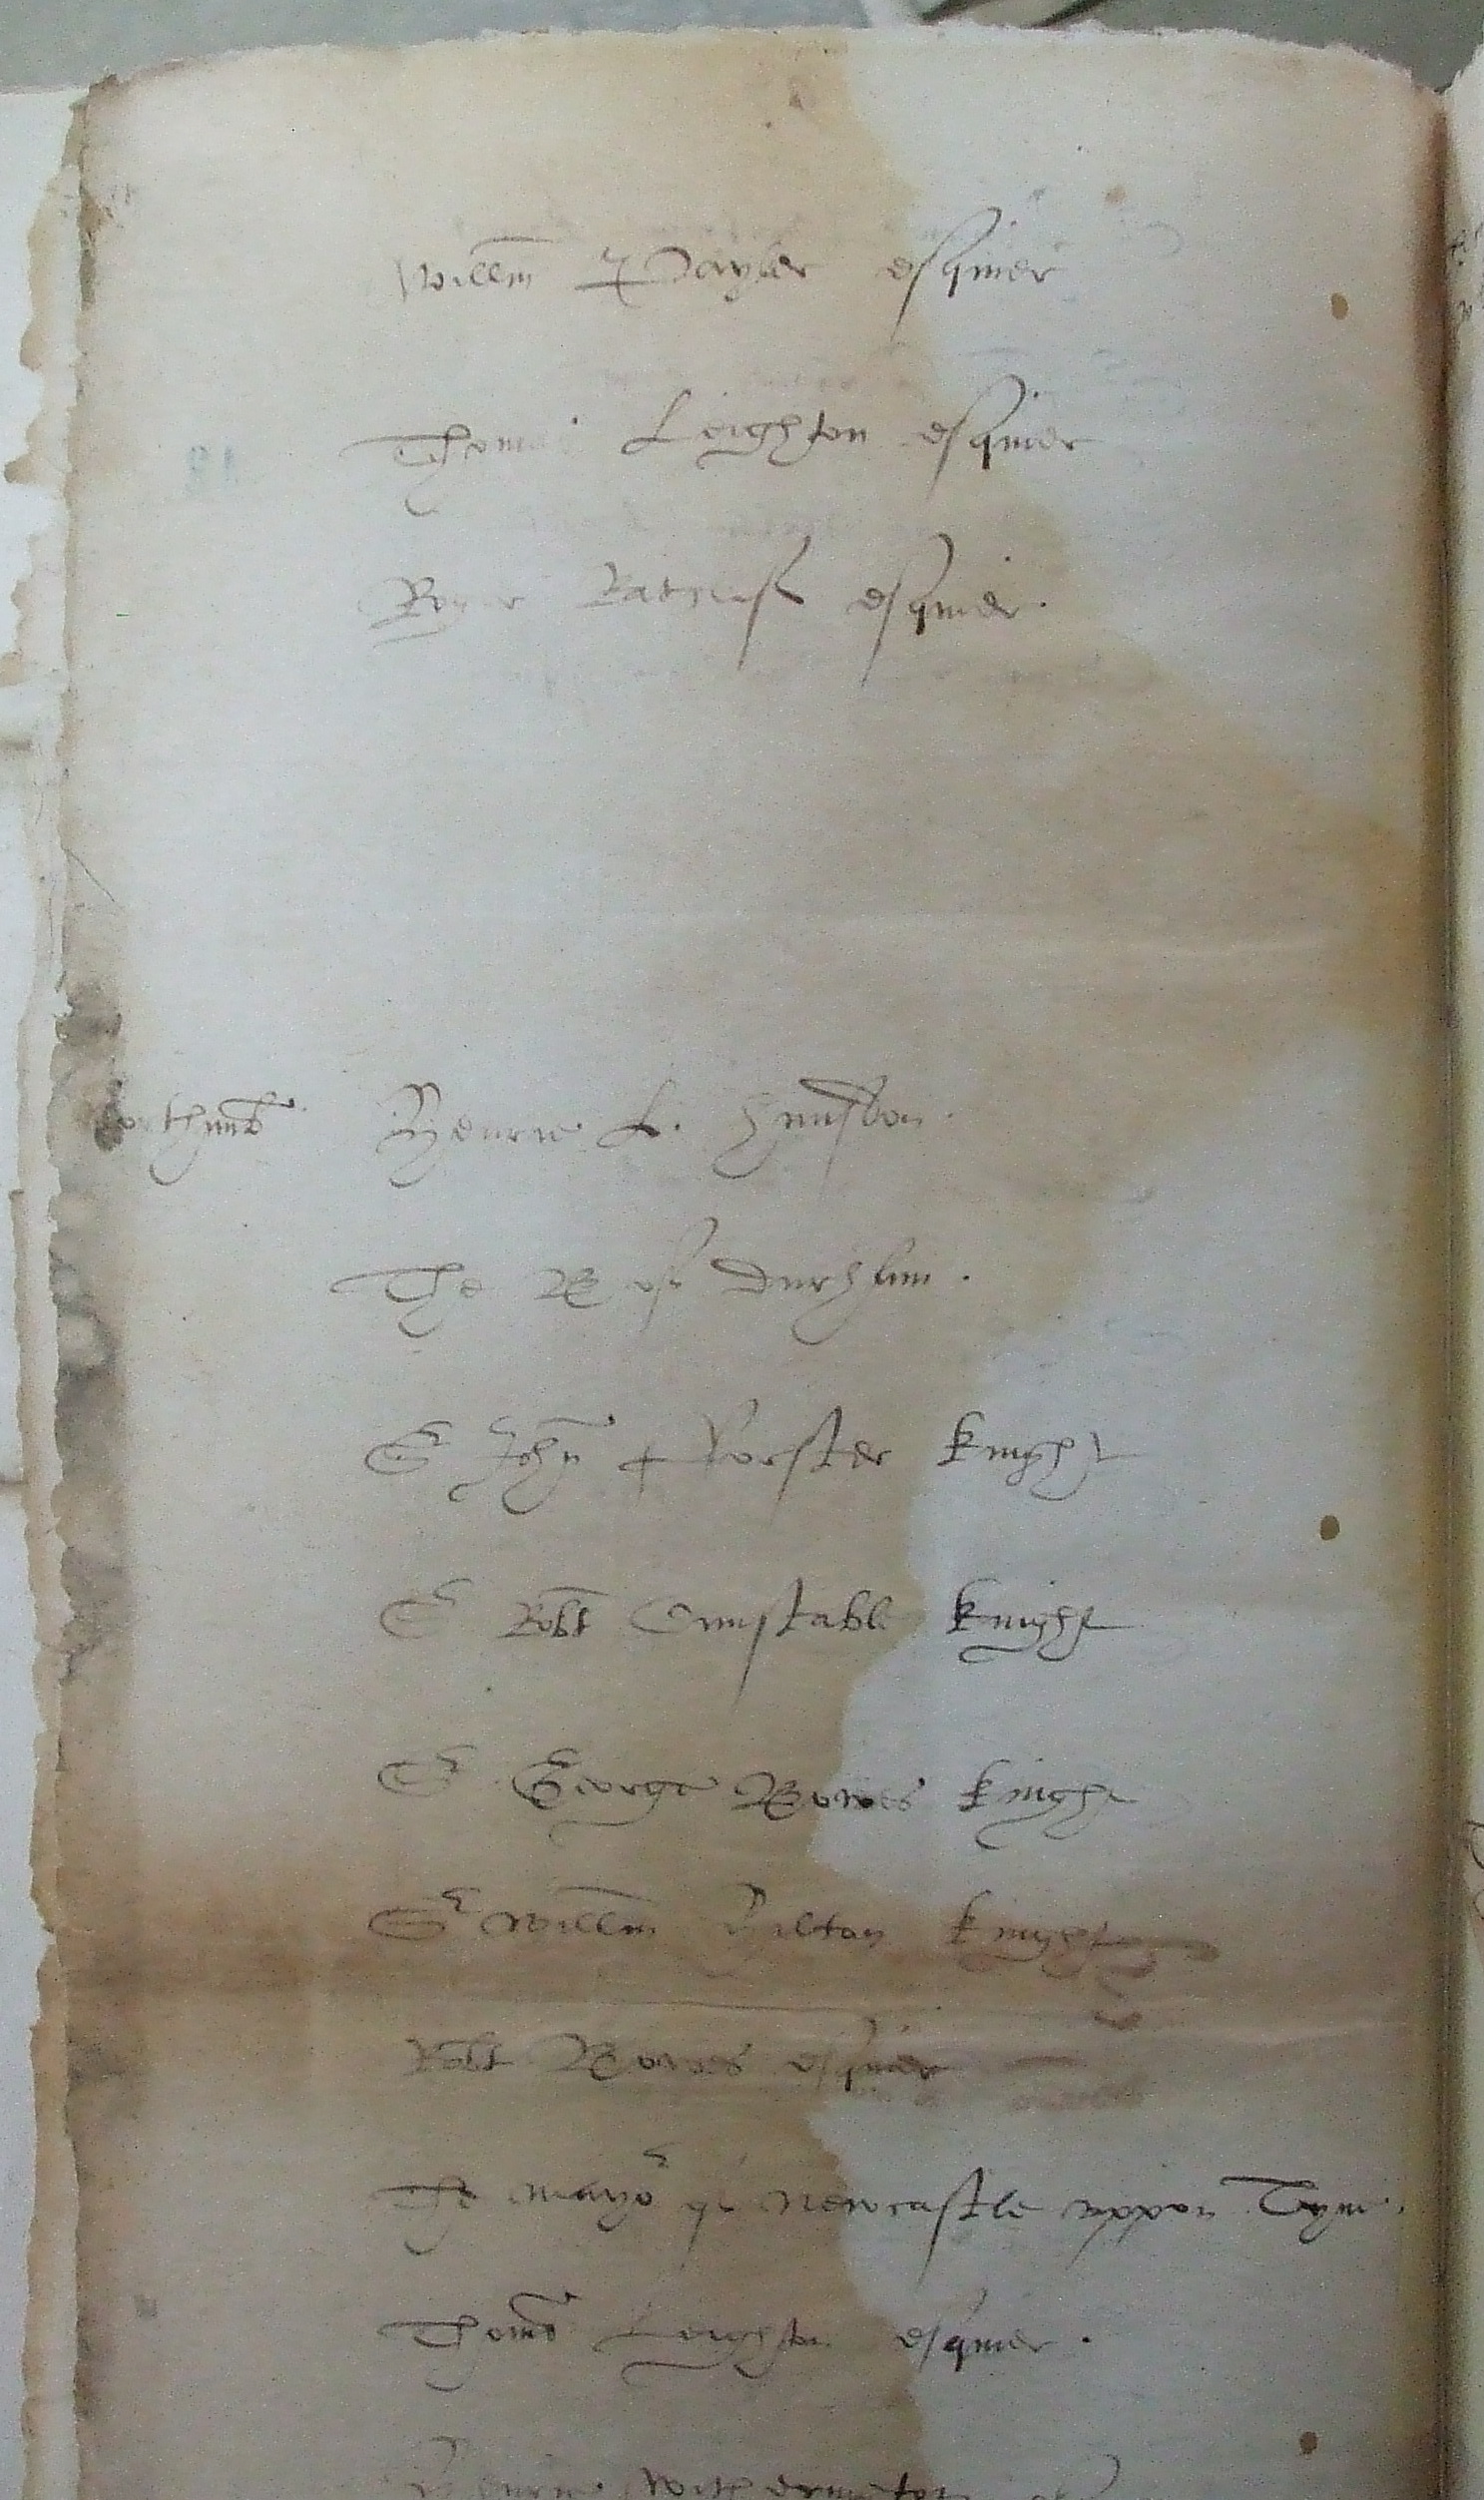 Willm Tayler esquier
Thomas Leighton esquier
Roger Ratclif esquier.
Northumb Henrie L. Hunsdon.
The B of Durham.
Sr John Forster knight
Sr Robt Cunstable knight
Sr George Bowes knight
Sr Willm Hilton knight
Robt Bowes esquier
The mayor of Newcastle uppon Tyne.
Thoms Leighton esquier.
Henrie Witherington